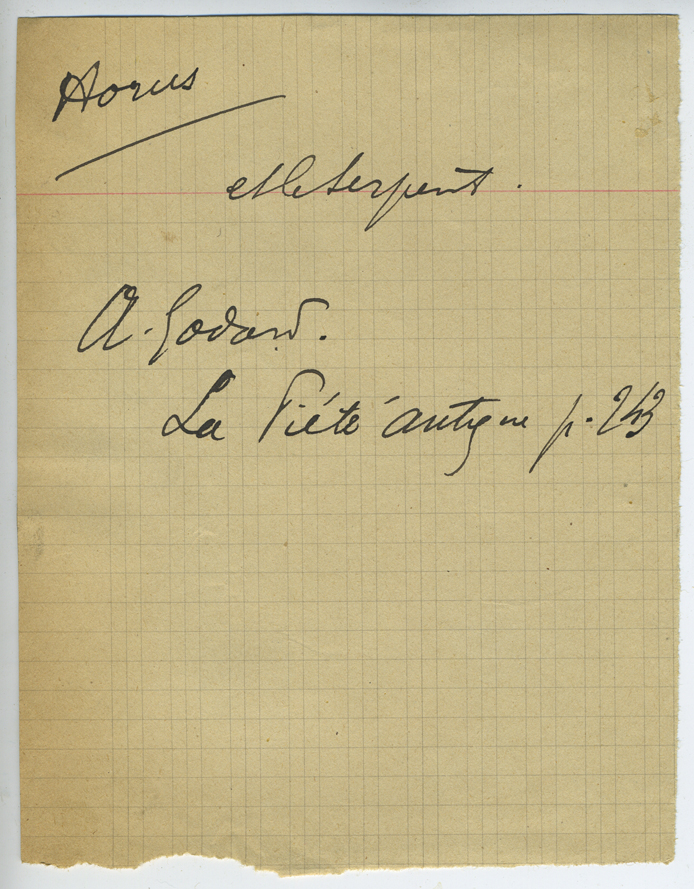 Horus
et le serpent.
A. Godard.
La Piété antique p. 243